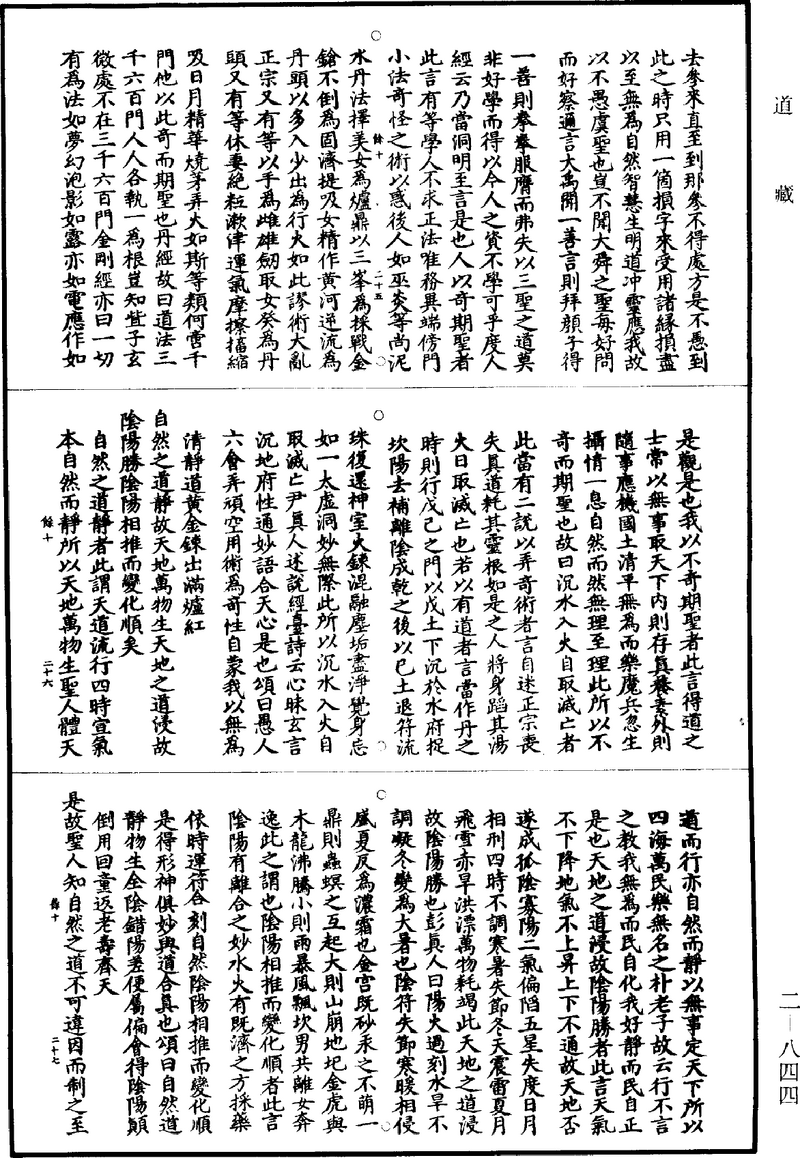 道藏
二-八四四
去參來直至到那參不得處方是不愚到
此之時只用一箇損字來受用諸緣損盡
以至無為自然智慧生明道冲靈應我故
以不愚虞聖也豈不聞大舜之聖每好問
而好察邇言大禹聞一善言則拜顏子得
一善則拳拳服膺而弗失以三聖之道莫
非好學而得以今人之資不學可乎度人
經云乃當洞明至言是也人以奇期聖者
此言有等學人不求正法唯務異端傍門
小法奇怪之術以惑後人如巫炎等尚泥
餘十
二十五
水丹法擇美女為爐鼎以三峯為採戰金
鎗不倒為固濟提吸女精作黃河逆流為
丹頭以多入少出為行火如此謬術大亂
正宗又有等以手為雌雄劒取女癸為丹
頭又有等休妻絶粒漱津運氣摩擦搐縮
吸日月精華燒茅弄火如斯等類何啻千
門他以此奇而期聖也丹經故曰道法三
千六百門人人各執一為根豈知些子玄
微處不在三千六百門金剛經亦曰一切
有為法如夢幻泡影如露亦如電應作如
是觀是也我以不奇期聖者此言得道之
士常以無事取天下內則存真養素外則
隨事應機國土清平無為而樂魔兵忽生
攝情一息自然而然無理至理此所以不
奇而期聖也故曰沉水入火自取滅亡者
此當有二說以弄奇術者言自迷正宗喪
失真道耗其靈根如是之人將身蹈其湯
火日取滅亡也若以有道者言當作丹之
時則行戊己之門以戊土下沉於水府捉
坎陽去補離陰成乾之後以己土退符流
珠復還神室火鍊混融塵垢盡淨覺身忘
如一太虛洞妙無際此所以沉水入火自
取滅亡尹真人述說經臺詩云心昧玄言
沉地府性通妙語合天心是也頌曰愚人
六會弄頑空用術為奇性自蒙我以無為
清靜道黃金鍊出滿爐紅
自然之道靜故天地萬物生天地之道浸故
陰陽勝陰陽相推而變化順矣
自然之道靜者此謂天道流行四時宣氣
本自然而靜所以天地萬物生聖人體天
餘十
二十六
道而行亦自然而靜以無事定天下所以
四海萬民樂無名之朴老子故云行不言
之教我無為而民自化我好靜而民自正
是也天地之道浸故陰陽勝者此言天氣
不下降地氣不上昇上下不通故天地否
遂成孤陰寡陽二氣偏陷五星失度日月
相刑四時不調寒暑失節冬天震雷夏月
飛雪亦旱洪漂萬物耗竭此天地之道浸
故陰陽勝也彭真人曰陽火過刻水旱不
調凝冬變為大暑也陰符失節寒暖相侵
盛夏反為濃霜也金宫既砂汞之不萌一
鼎則蟲螟之互起大則山崩地圮金虎與
木龍沸騰小則雨暴風飄坎男共離女奔
逸此之謂也陰陽相推而變化順者此言
陰陽有離合之妙水火有既濟之方採藥
依時運符合刻自然陰陽相推而變化順
是得形神俱妙與道合真也頌曰自然道
靜物生全陰錯陽差便屬偏會得陰陽顛
倒用回童返老壽齊天
是故聖人知自然之道不可違因而制之至
餘十
二十七